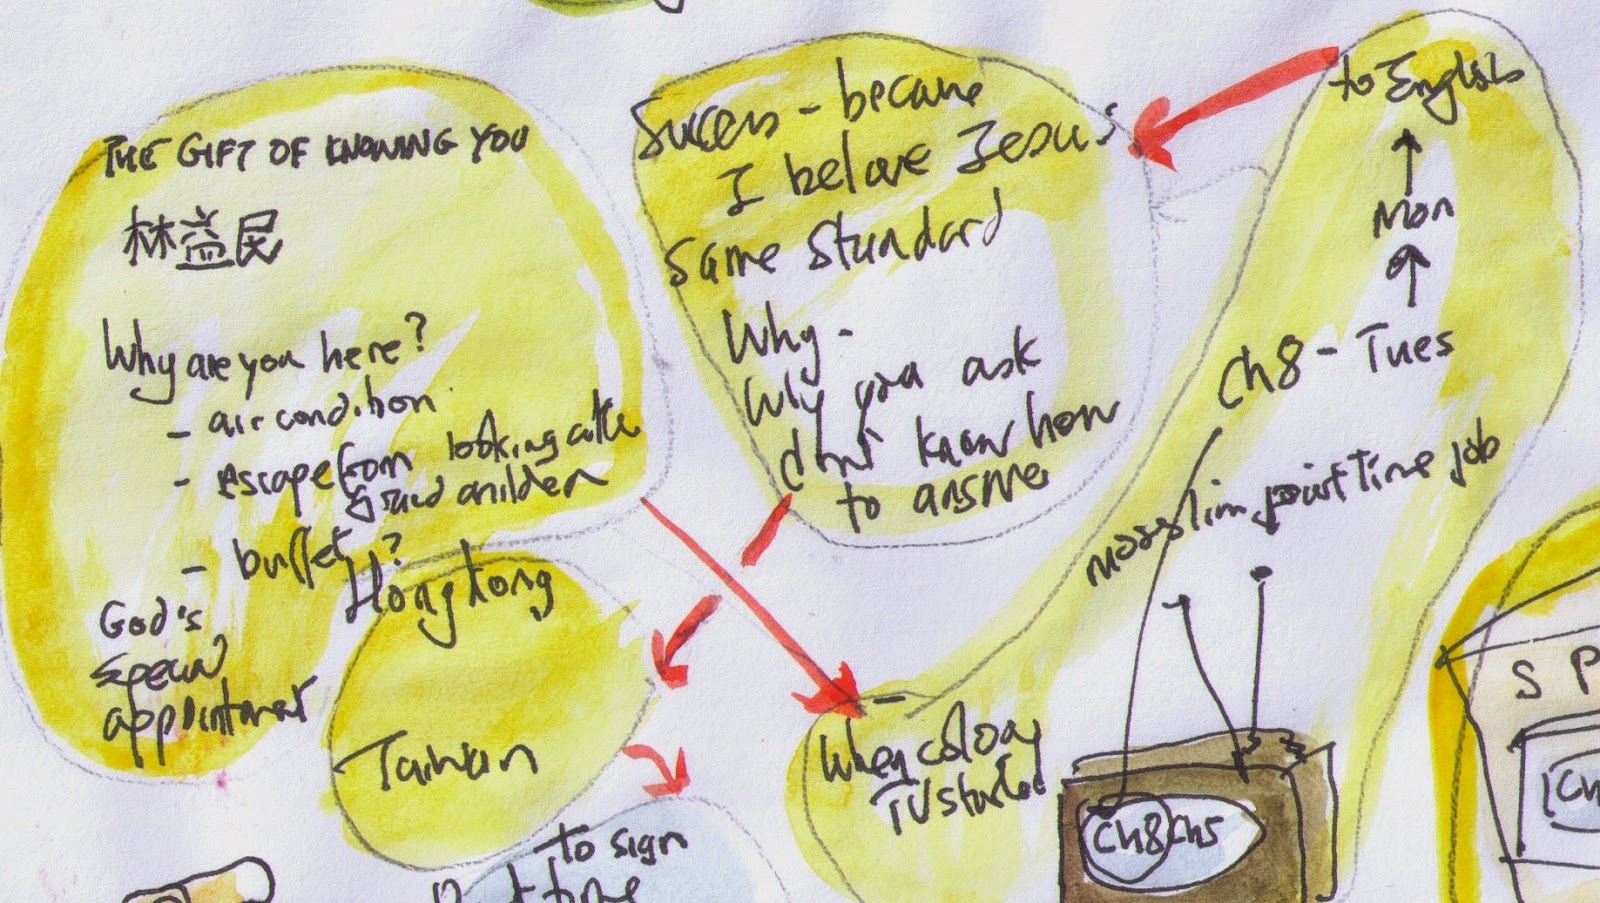 THE GIFT OF KNOWING YOU
林益民
Why are you here?
- air condition
- escape from looking
grand children
- buffet?
God's
special
appointment
Hong kong
Taiwan
Success - because
I believe Jesus
same standard
Why -
Why you ask
don't know how
to answer
to English
Mon
Ch8 - Tues
part time job
When colour
TV started
Ch8 Ch5
To sign
time
S P